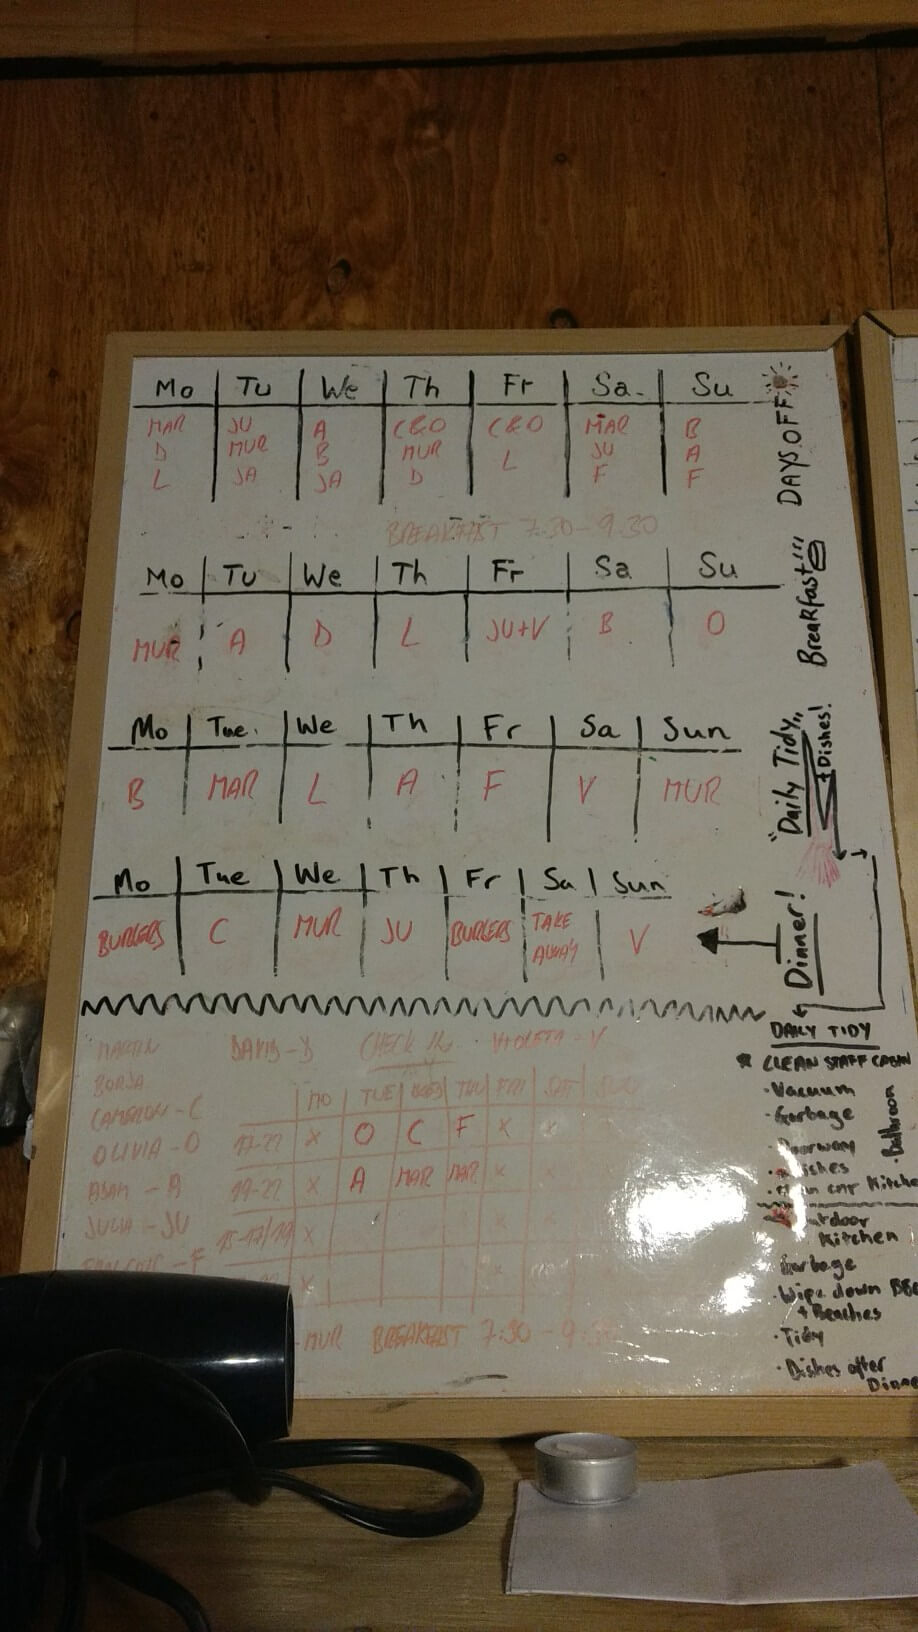 Mo Tu We Th Fr Sa. Su
MAR JU A C&O C&O MAR B
D MUR B MUR L JU A
L JA JA D F F
DAYS OFF
BREAKFAST 7.30-9.30
Mo Tu We Th Fr Sa Su
MUR A D L JU+V B O
Breakfast!!!
Mo Tue. We Th Fr Sa Sun
B MAR L A F V MUR
"Daily Tidy"
+Dishes!
Mo Tue We Th Fr Sa Sun
BURGERS C MUR JU BURGERS TAKE AWAY V
Dinner!
MARTIN DAVID-D CHECK IN VIOLETA-V
BORJA
CAMERON-C
OLIVIA-O
ADAM-A
JULIA-JU
MO TUE THU FRI SAT
17-22 X O C F X X
19-22 X A MAR MAR X X
15-17/19 X
X
MUR BREAKFAST 7:30-9
DAILY TIDY
* CLEAN STAFF CABIN
·Vacuum
·Garbage
·Doorway
·Dishes
Kitche
·Bathroom
Outdoor
Kitchen
Garbage
·Wipe down BB
+ Beaches
·Tidy
·Dishes after
Dinne